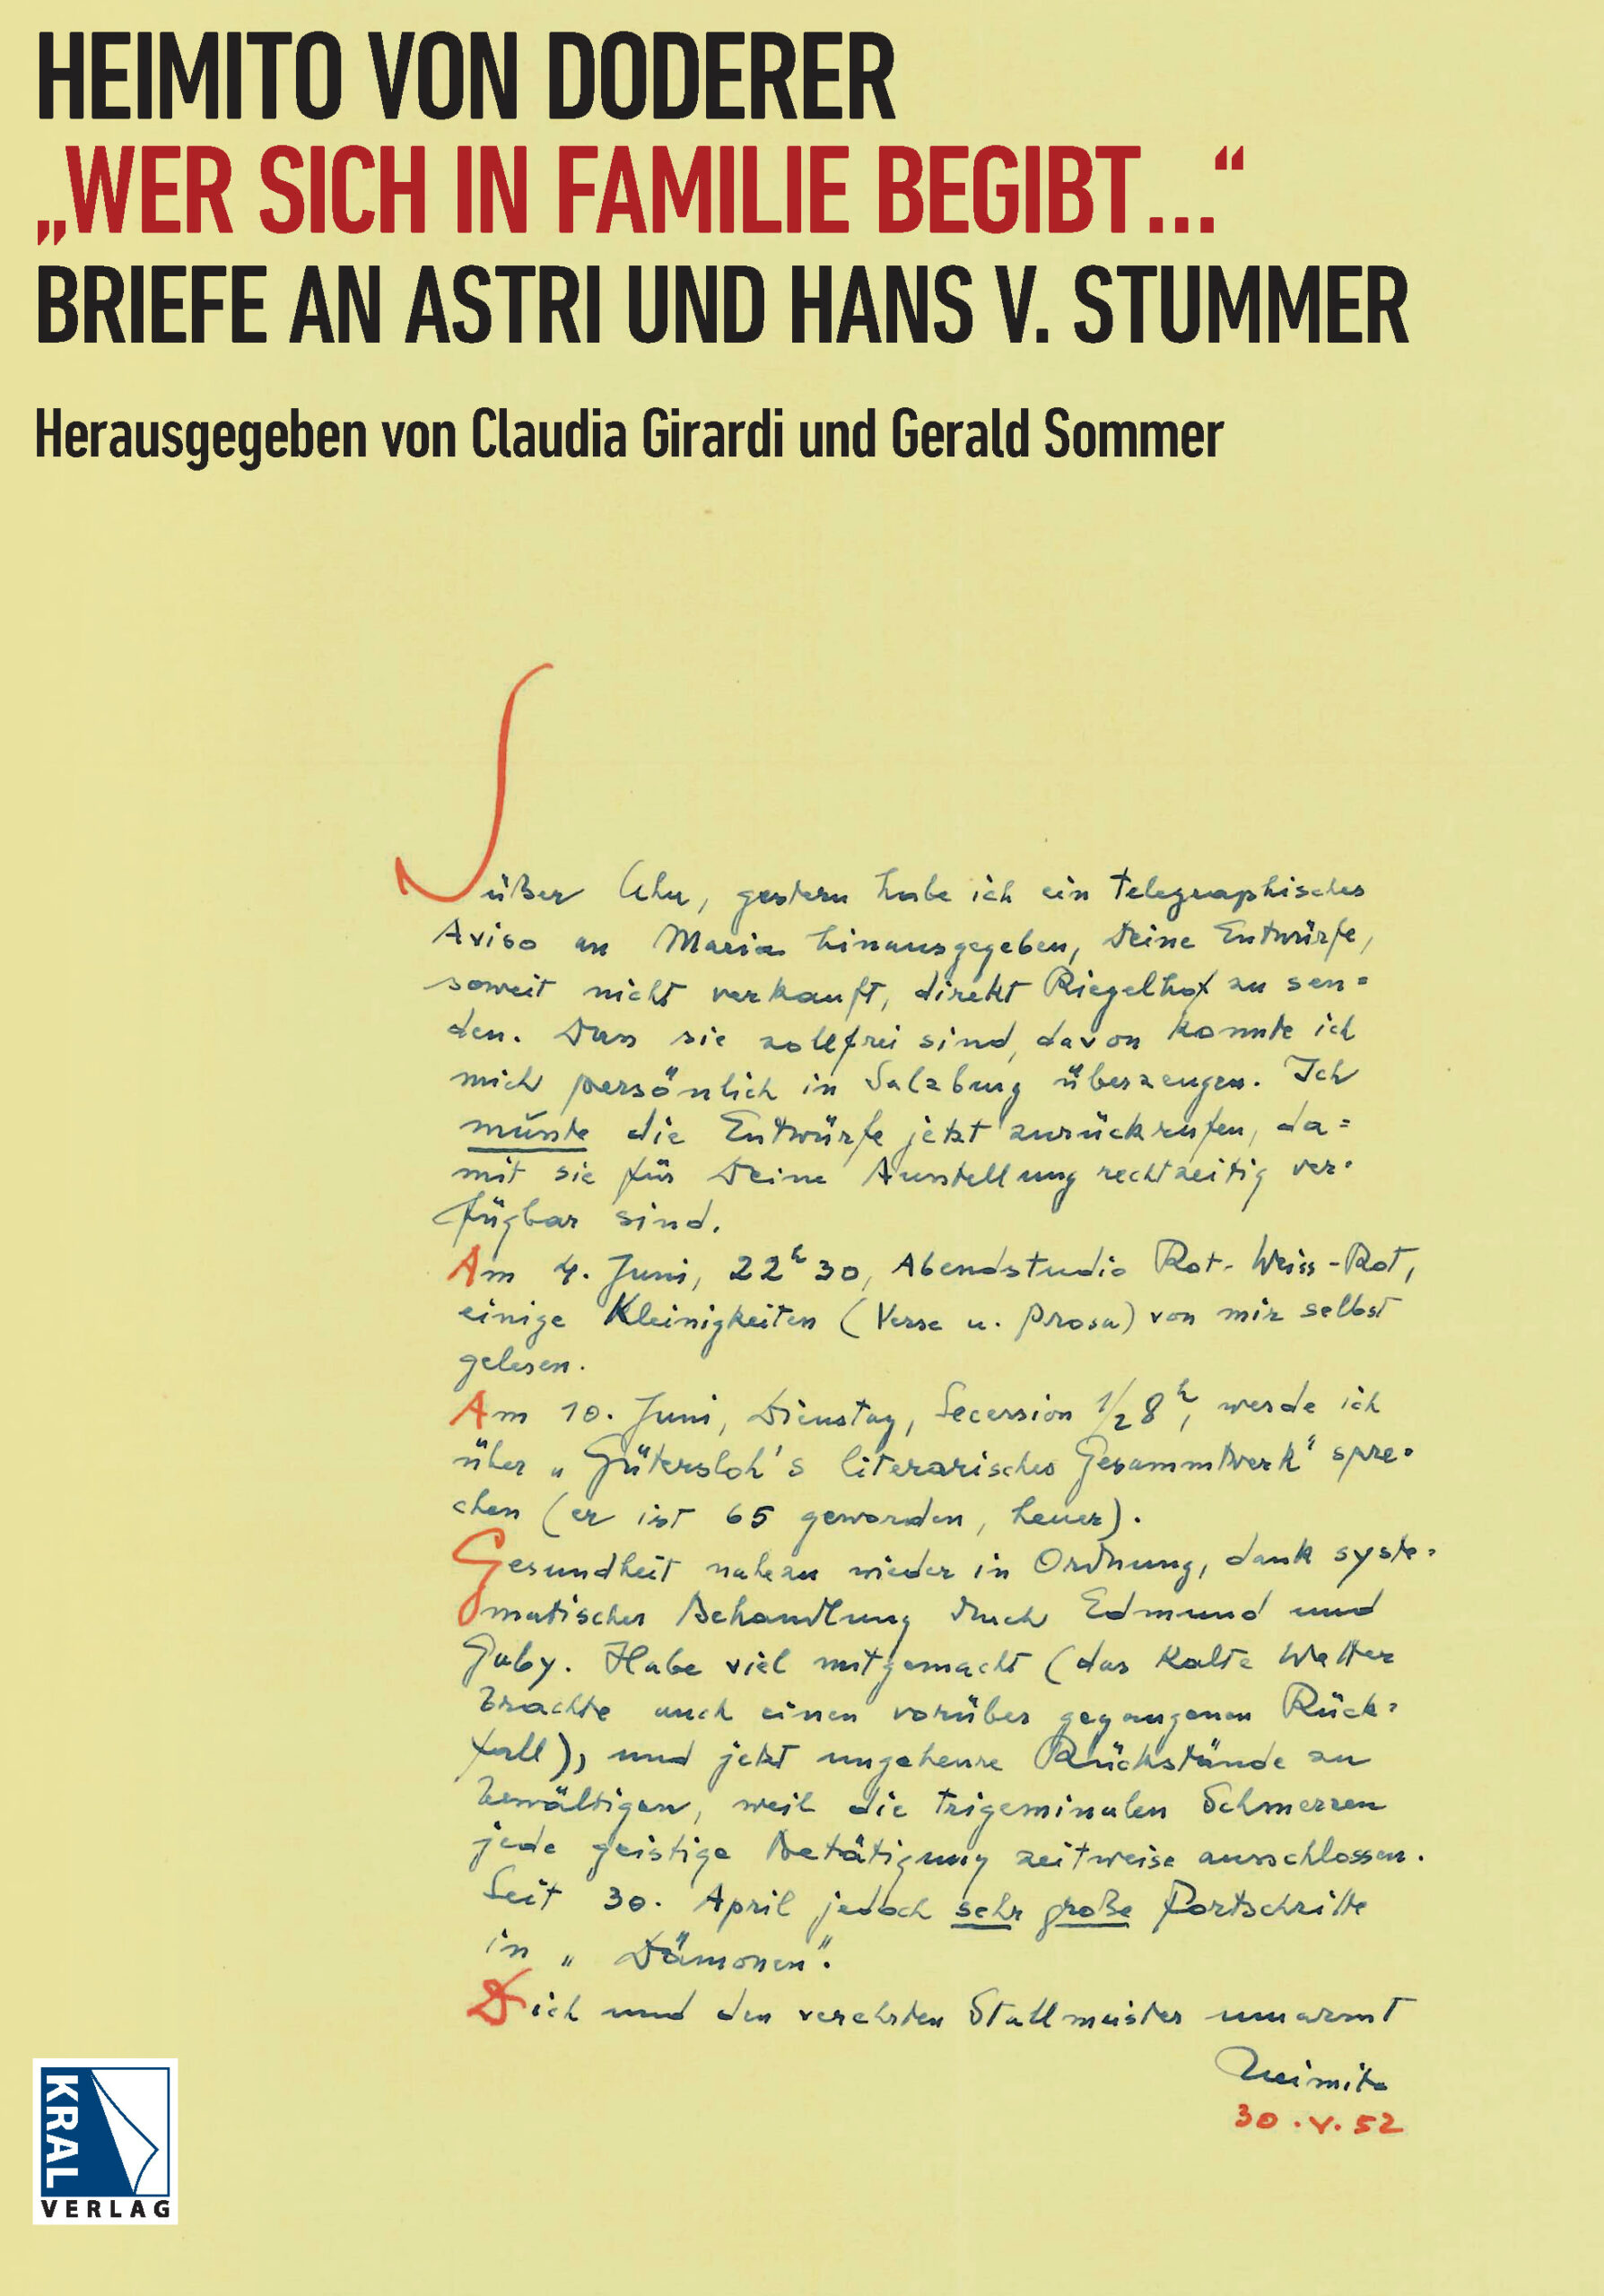 HEIMITO VON DODERER
„WER SICH IN FAMILIE BEGIBT…“
BRIEFE AN ASTRI UND HANS V. STUMMER
Herausgegeben von Claudia Girardi und Gerald Sommer
Süßer Uhu, gestern habe ich ein telegraphisches
Aviso an Maria hinausgegeben, Deine Entwürfe,
soweit nicht verkauft, direkt Riegelhof zu sen=
den. Dass sie zollfrei sind, davon konnte ich
mich persönlich in Salzburg überzeugen. Ich
musste die Entwürfe jetzt zurückrufen, da=
mit sie für Deine Ausstellung rechtzeitig ver=
fügbar sind.
Am 4. Juni, 22h30, Abendstudio Rot-Weiss-Rot,
einige Kleinigkeiten (Verse u. Prosa) von mir selbst
gelesen.
Am 10. Juni, Dienstag, Secession 1/2 8h, werde ich
über „Gütersloh's literarisches Gesammtwerk“ spre=
chen (er ist 65 geworden, heuer).
Gesundheit nahezu wieder in Ordnung, dank syste=
matischer Behandlung durch Edmund und
Gaby. Habe viel mitgemacht (das kalte Wetter
brachte auch einen vorüber gegangenen Rück=
fall), und jetzt ungeheure Rückstände zu
bewältigen, weil die trigeminalen Schmerzen
jede geistige Betätigung zeitweise ausschlossen.
Seit 30. April jedoch sehr große Fortschritte
in „Dämonen“.
Dich und den verehrten Stallmeister umarmt
Heimito
30.V.52
KRAL
VERLAG